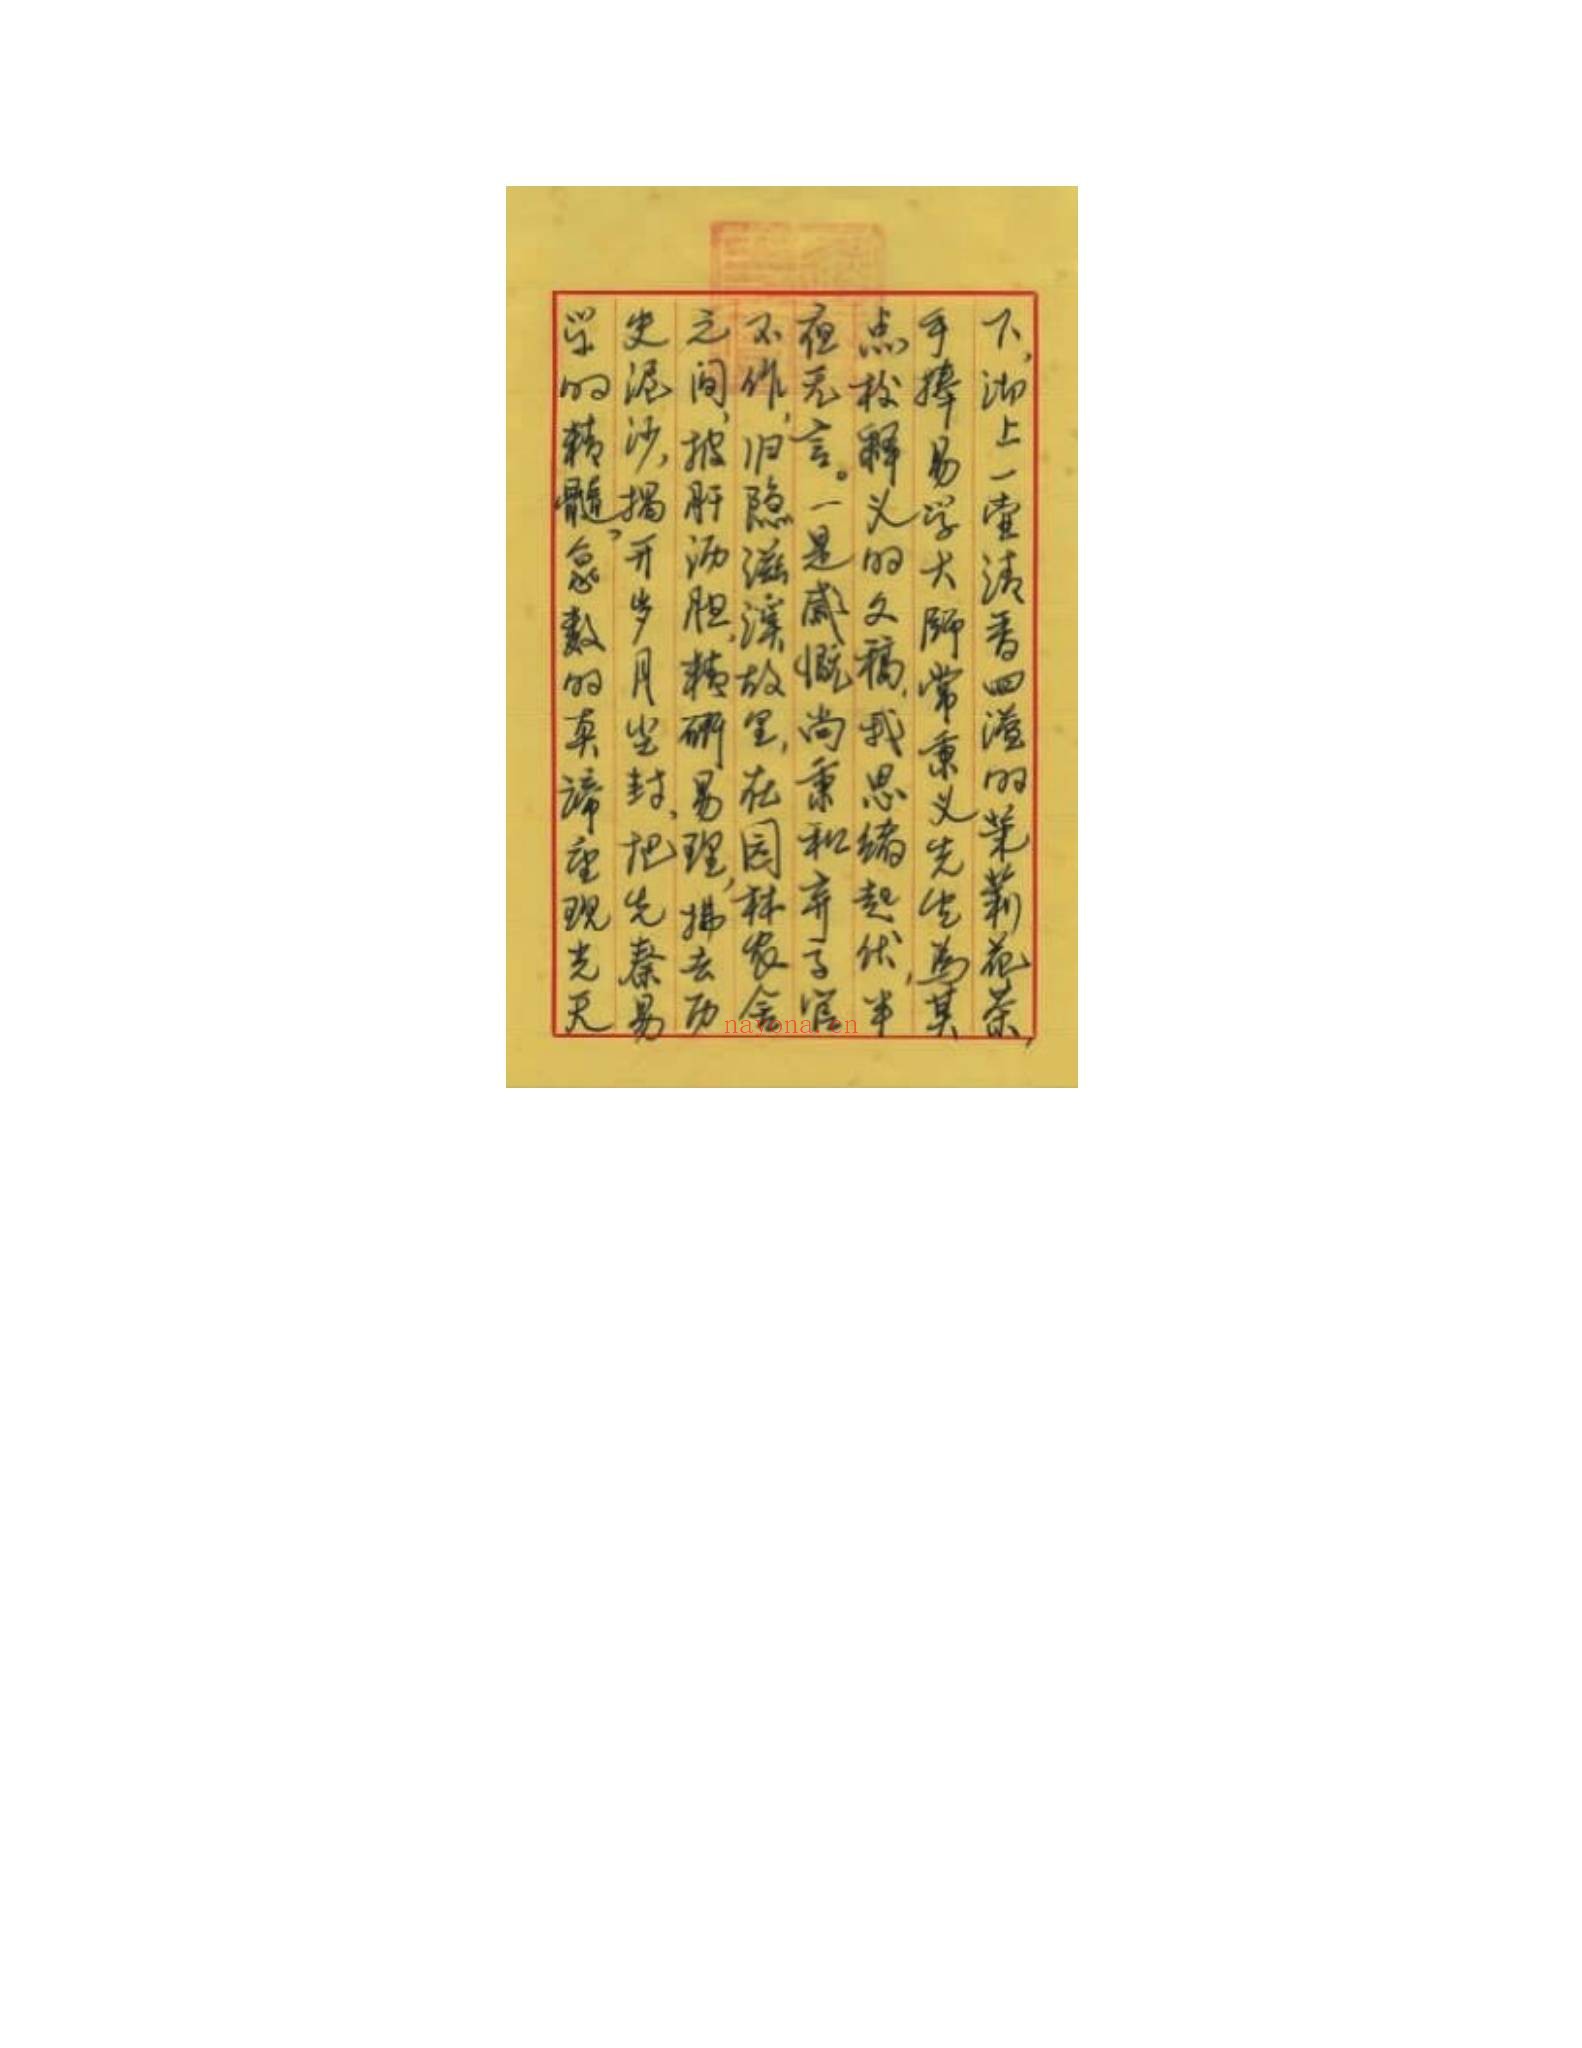 下，沏上一壶清香四溢的茉莉花茶，
手捧易学大师常秉义先生为其
点校释义的文稿，我思绪起伏，半
夜无言。一是感慨尚秉和弃了官
不作，归隐滋溪故里，在园林农舍
之间，披肝沥胆，精研易理，拂去历
史泥沙，揭开岁月尘封，把先秦易
学的精髓，象数的真谛重现光天
nayona.cn